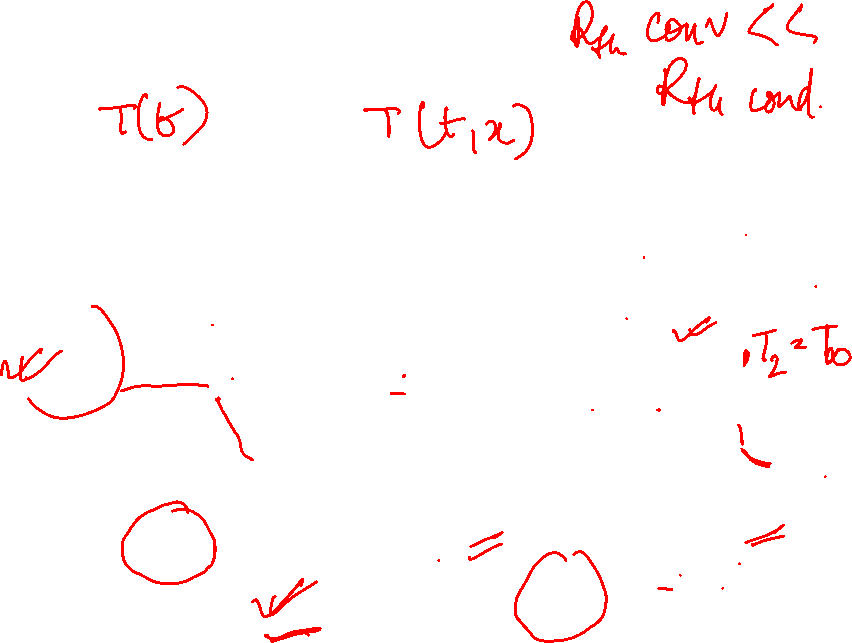 Rth conv <<
Rth cond.
T(t)
T(t,x)
T2=T∞